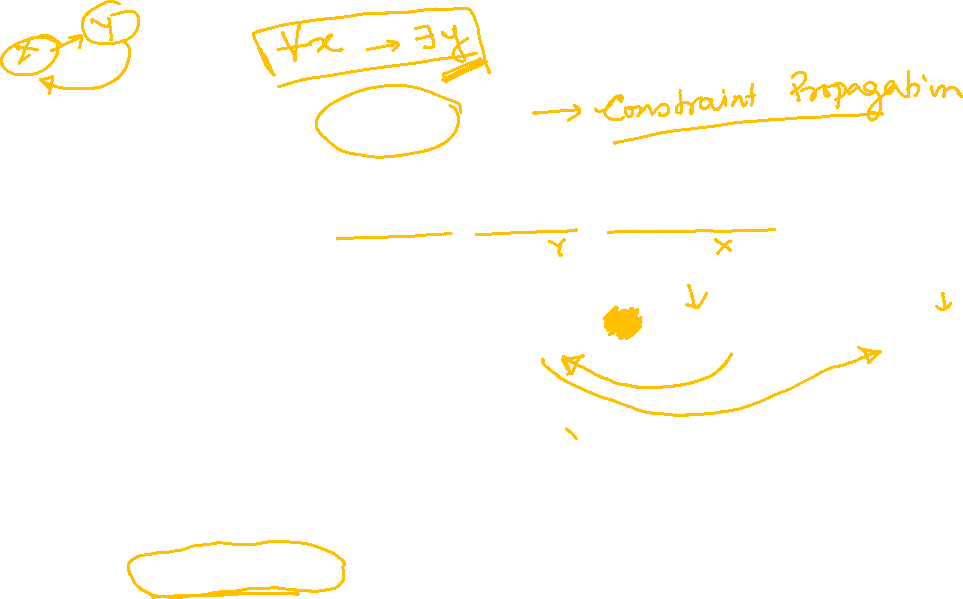 Y
∀x → ∃y
→ Constraint Propagation
Y X